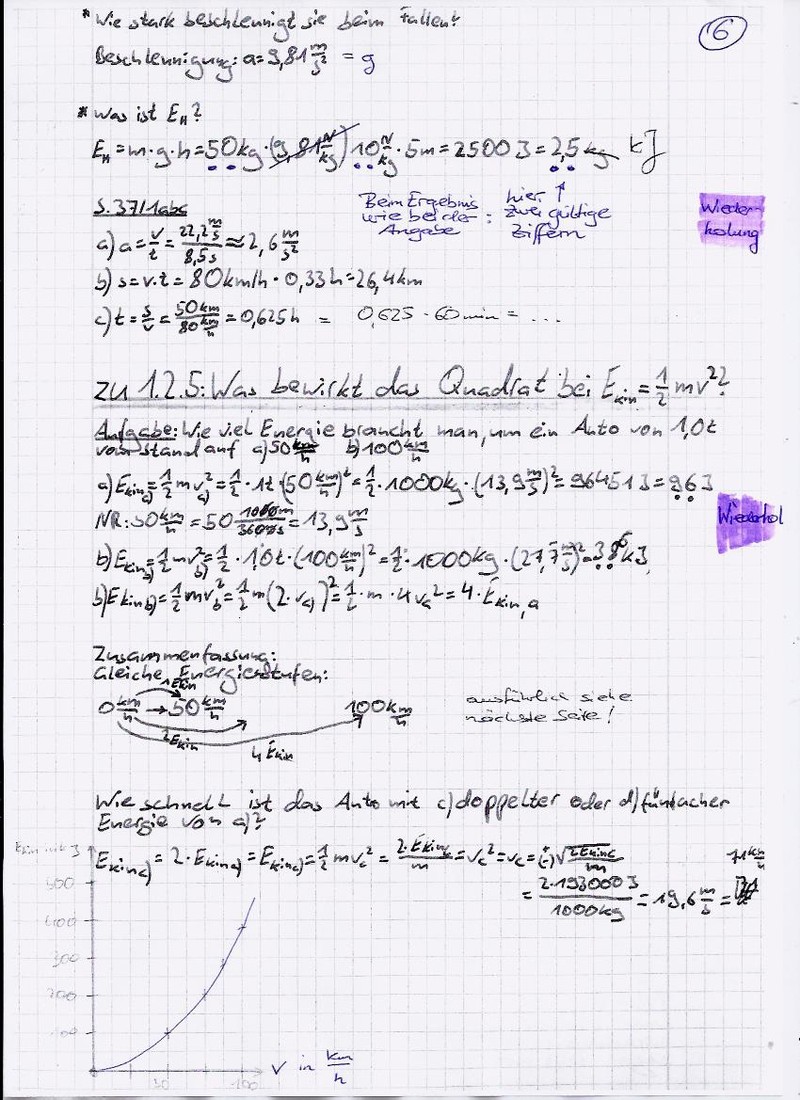 * Wie stark beschleunigt sie beim Fallen?
6
Beschleunigung: a = 9,81 m/s² = g
* Was ist E_H?
E_H = m·g·h = 50kg·(9,81 N/kg) 10 N/kg · 5m = 2500J = 2,5 kg kJ
Beim Ergebnis wie bei der Angabe : hier ↑ zwei gültige Ziffern
S. 37/1abc
Wiederholung
a) a = v/t = 22,2 m/s / 8,5s ≈ 2,6 m/s²
b) s = v·t = 80km/h · 0,33h = 26,4km
c) t = s/v = 50km / 80 km/h = 0,625h = 0,625 · 60min = ...
zu 1.2.5: Was bewirkt das Quadrat bei E_kin = 1/2 mv²?
Aufgabe: Wie viel Energie braucht man, um ein Auto von 1,0t
vom Stand auf a) 50 km/h b) 100 km/h
a) E_kin a) = 1/2 m v_a)² = 1/2 · 1t · (50 km/h)² = 1/2 · 1000kg · (13,9 m/s)² = 96451J = 96J
NR: 50 km/h = 50 1000m/3600s = 13,9 m/s
Wiederhol
b) E_kin b) = 1/2 m v_b)² = 1/2 · 1,0t · (100 km/h)² = 1/2 · 1000kg · (27,7 m/s)² = 386kJ
b) E_kin b) = 1/2 m v_b² = 1/2 m (2·v_a)² = 1/2 · m · 4v_a² = 4 · E_kin,a
Zusammenfassung:
Gleiche Energiestufen:
1E_kin
0 km/h → 50 km/h 100 km/h
ausführlich siehe
nächste Seite!
2E_kin
4 E_kin
Wie schnell ist das Auto mit c) doppelter oder d) fünffacher
Energie von a)?
E_kin c) = 2·E_kin a) = E_kin c) = 1/2 m v_c² = 2·E_kin c / m = v_c² = v_c = (±)√(2E_kin c / m)
= 2·193000J / 1000kg = 19,6 m/s = 71 km/h
500
400
300
200
100
50 100
v in km/h